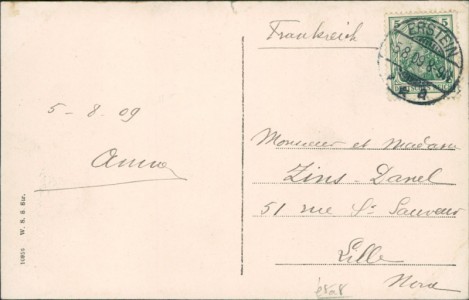 Frankreich
5
5
ERSTEIN
5.8.09
5 - 8. 09
Anna
Monsieur et Madame
Zins-Danel
51 rue St Sauveur
Lille
Nord
16956 W. S. S. Str.